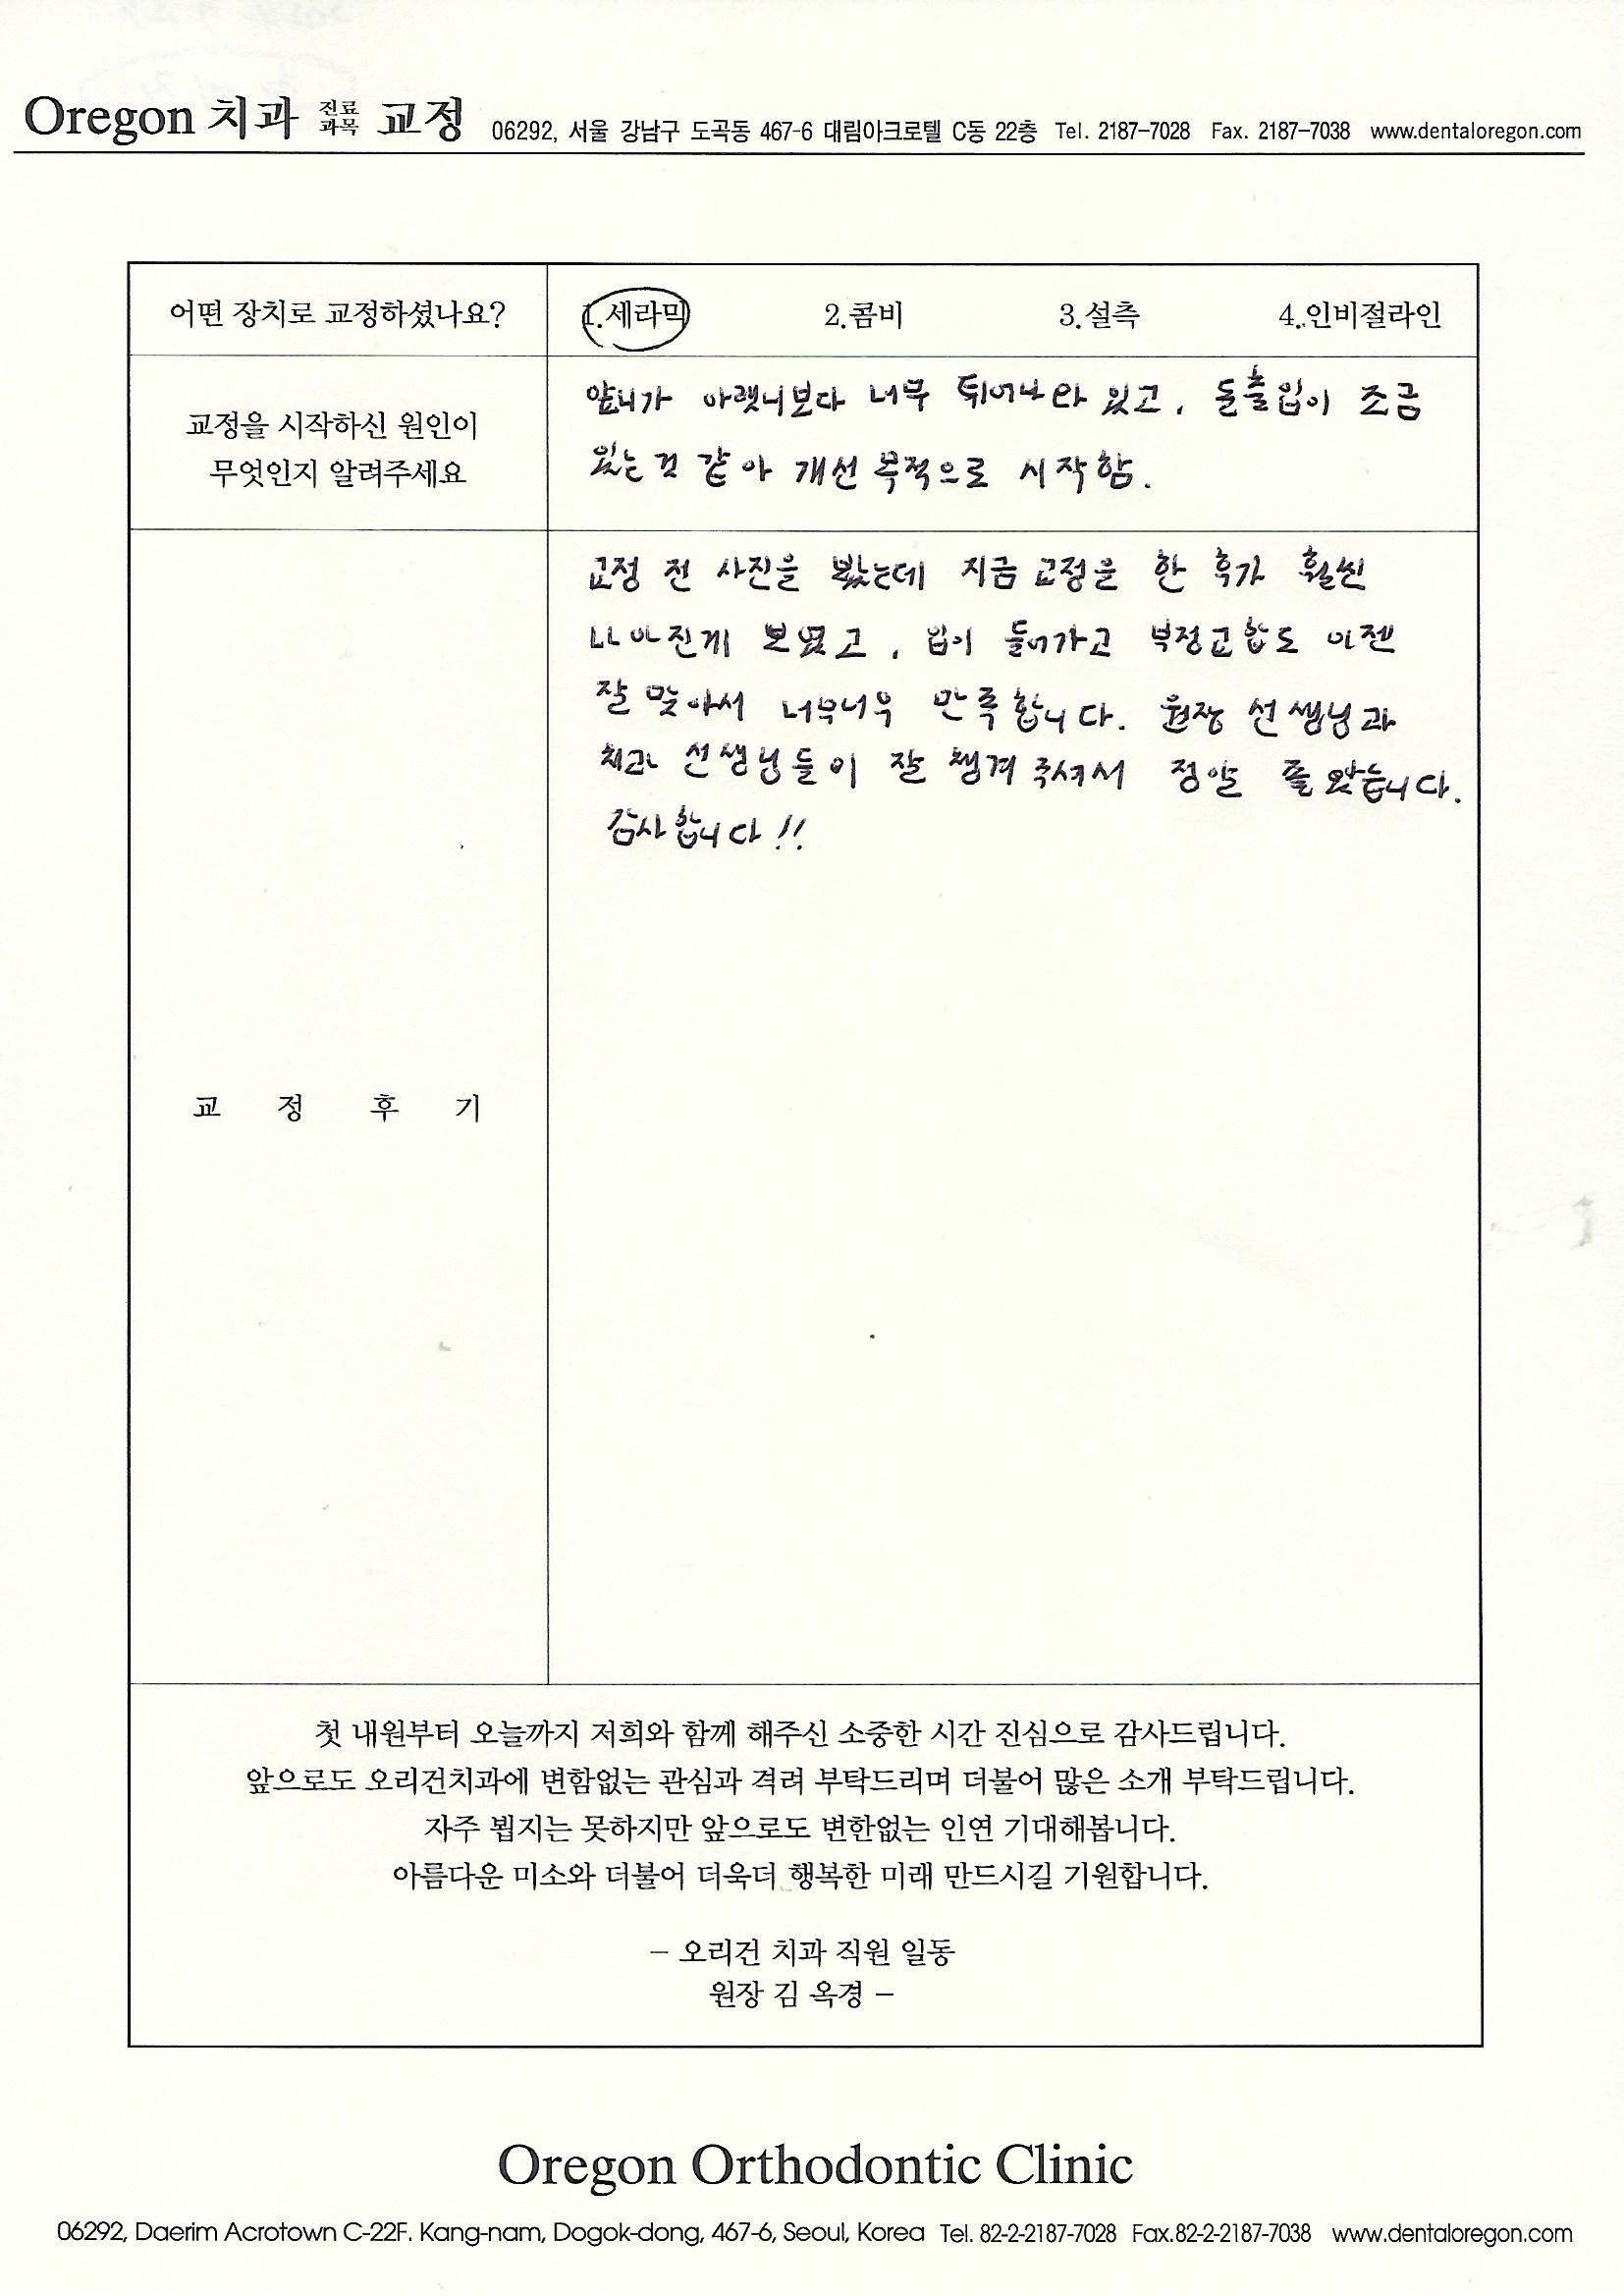 Oregon 치과 진료과목 교정 06292, 서울 강남구 도곡동 467-6 대림아크로텔 C동 22층 Tel. 2187-7028 Fax. 2187-7038 www.dentaloregon.com
어떤 장치로 교정하셨나요? 1.세라믹 2.콤비 3.설측 4.인비절라인
교정을 시작하신 원인이
무엇인지 알려주세요
앞니가 아랫니보다 너무 튀어나와 있고, 돌출입이 조금
있는것 같아 개선 목적으로 시작함.
교정후기
교정 전 사진을 봤는데 지금 교정을 한 후가 훨씬
나아진게 보였고, 입이 들어가고 부정교합도 이젠
잘 맞아서 너무너무 만족합니다. 원장 선생님과
치과 선생님들이 잘 챙겨주셔서 정말 좋았습니다.
감사합니다!!
첫 내원부터 오늘까지 저희와 함께 해주신 소중한 시간 진심으로 감사드립니다.
앞으로도 오리건치과에 변함없는 관심과 격려 부탁드리며 더불어 많은 소개 부탁드립니다.
자주 뵙지는 못하지만 앞으로도 변한없는 인연 기대해봅니다.
아름다운 미소와 더불어 더욱더 행복한 미래 만드시길 기원합니다.
- 오리건 치과 직원 일동
원장 김 옥경 -
Oregon Orthodontic Clinic
06292, Daerim Acrotown C-22F. Kang-nam, Dogok-dong, 467-6, Seoul, Korea Tel. 82-2-2187-7028 Fax.82-2-2187-7038 www.dentaloregon.com